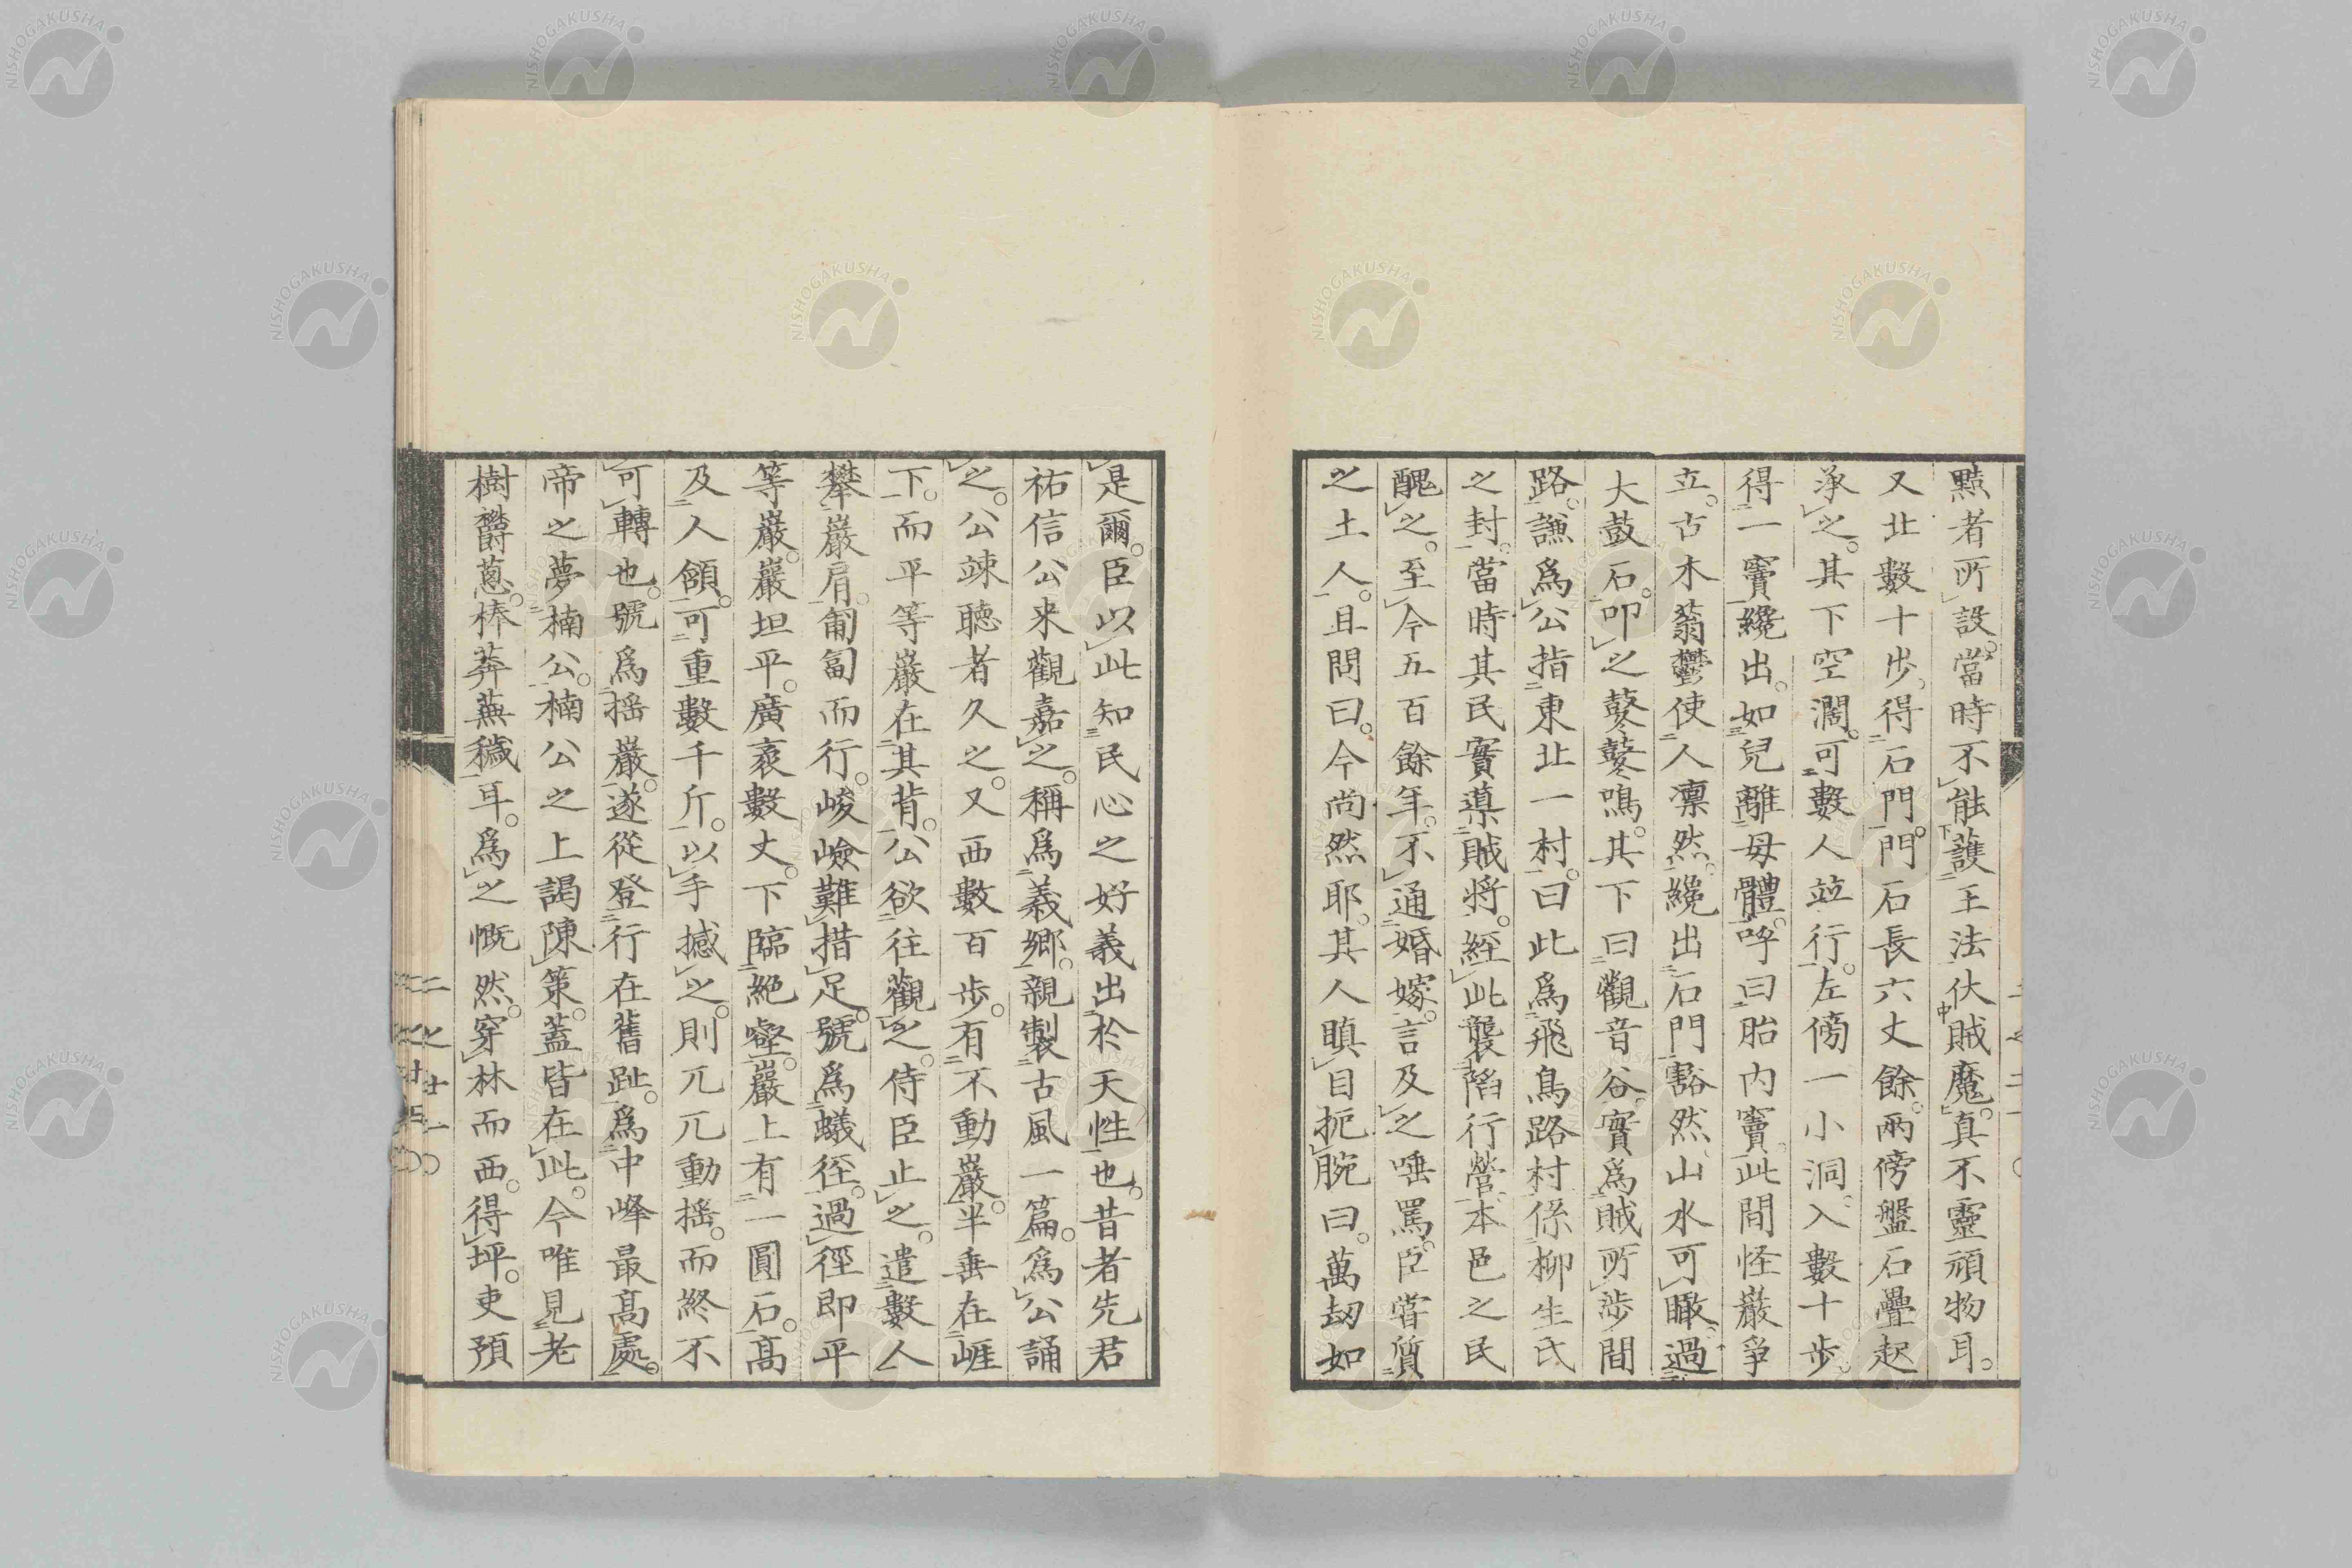 黠者所設當時不能護王法伏賊魔真不靈頑物耳。
又北數十步得石門。門石長六丈餘。兩傍盤石疊起
承之。其下空濶。可數人竝行。左傍一小洞入數十步
得一竇纔出。如兒離母體。呼曰胎内竇此間怪巖爭
立。古木蓊鬱使人凛然。纔出石門豁然山水可瞰過
大鼓石。叩之鼕鼕鳴。其下曰觀音谷實為賊所涉間
路。謙為公指東北一村。曰此為飛鳥路村係柳生氏
之封。當時其民實導賊將。經此襲陷行營本邑之民
醜之。至今五百餘年。不通婚嫁。言及之唾罵。臣嘗質
之土人。且問曰。今尚然耶。其人瞋目扼腕曰。萬刼如
是爾。臣以此知民心之好義出於天性也。昔者先君
祐信公来觀嘉之。稱為義郷。親製古風一篇。為公誦
之。公竦聽者久之。又西數百步。有不動巖。半垂在崕
下。而平等巖在其背。公欲往觀之。侍臣止之。遣數人
攀巖肩。匍匐而行。峻嶮難措足。號為蟻徑。過徑即平
等巖。巖坦平。廣袤數丈。下臨絶壑。巖上有一圓石。高
及人頷。可重數千斤。以手撼之。則兀兀動揺。而終不
可轉也。號為揺巖。遂從登行在舊趾。為中峰最高處。
帝之夢楠公。楠公之上謁陳策。蓋皆在此。今唯見老
樹欝蔥。榛莽蕪穢耳。為之慨然。穿林而西。得坪。吏預
NISHOGAKUSHA